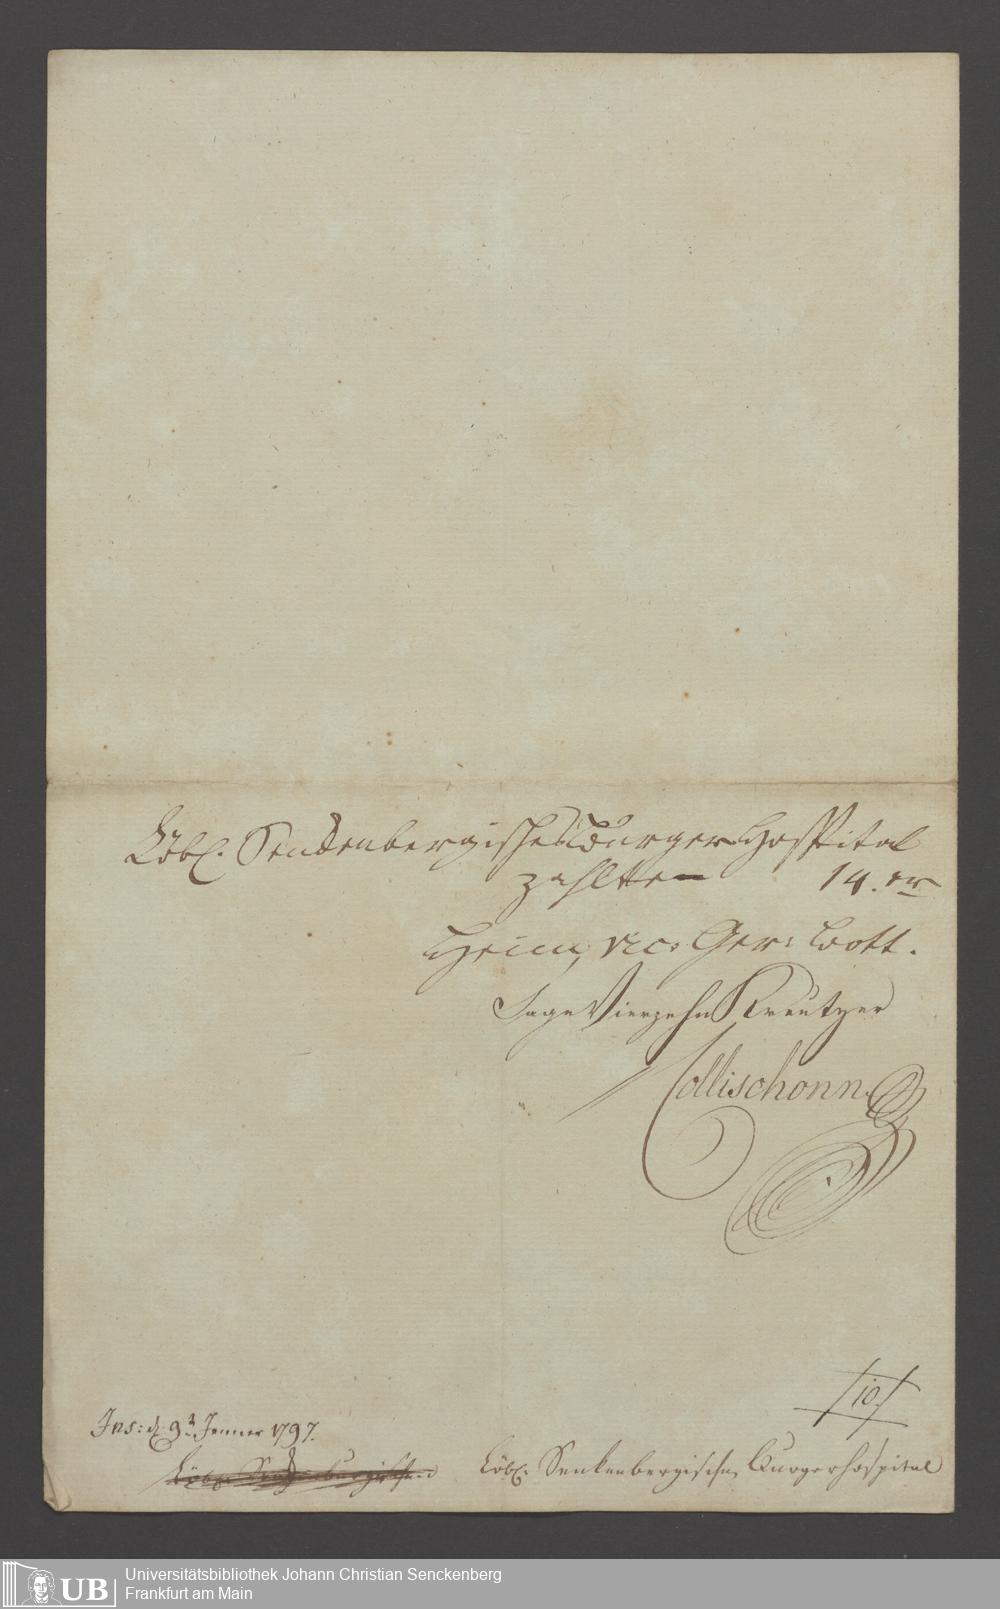 Löbl. Senckenbergisches Burger Hospital
zahlt 14. xr
Heim, vic. Ger: Bott.
Sage Vierzehn Kreutzer
Collischonn
/10/
Ins: d. 9t Jenner 1797.
Löbl. Senckenbergischen Löbl. Senkenbergische Burgerhospital
UB Universitätsbibliothek Johann Christian Senckenberg
Frankfurt am Main